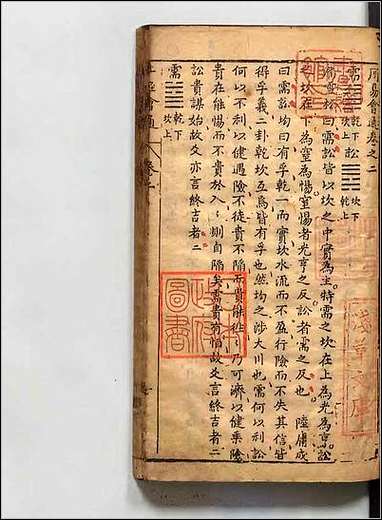 周易會通卷之二
需 乾下坎上 訟 坎下乾上
曰需訟皆以坎之中實為主特需之坎在上為光為亨訟
坎在下為窒為惕窒惕者光亨之反訟者需之反也 陸庸成
曰需訟均曰有孚乾一而實坎水流而不盈行險而不失其信皆
得孚義二卦乾坎互爲皆有孚也然均之涉大川也需何以利訟
何以不利以健遇險不徒貴不陷而貴能
乃可濟以健乘險
貴在能惕而不貴於入
則自陷矣需貴有
故爻言終吉者二
訟貴謀始故爻亦言終吉者二
需 乾下坎上
淺草文庫
圖書
卷二